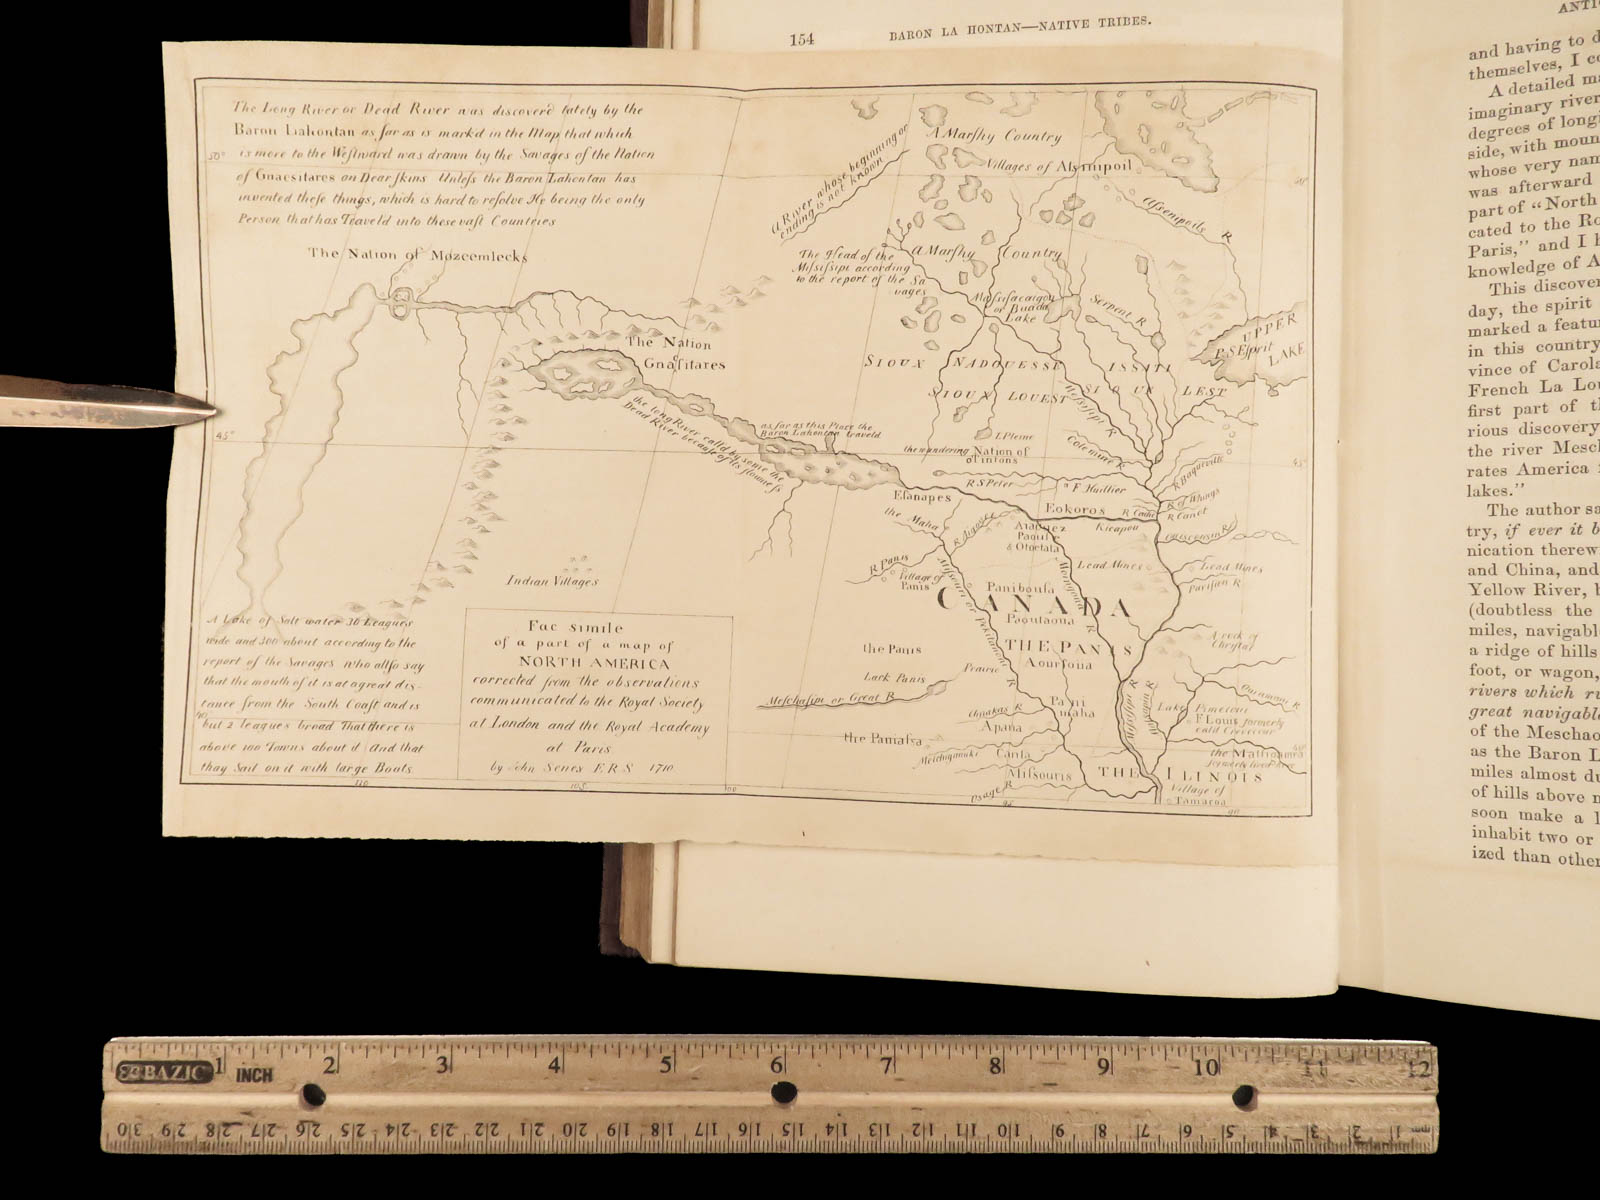 154 BARON LA HONTAN—NATIVE TRIBES.
The Long River or Dead River was discover'd lately by the
Baron Lahontan as far as is mark'd in the Map that which
is more to the Weſtward was drawn by the Savages of the Nation
of Gnacsitares on Dear ſkins Unleſs the Baron Lahontan has
invented theſe things, which is hard to reſolve He being the only
Person that has Traveld into these vaſt Countries
50°
The Nation of Mozeemlecks
The Nation
Gnacſitares
the long River call'd by some the
Dead River because of its slowneſs
as far as this Place the
Baron Lahontan traveld
45°
Indian Villages
A Lake of Salt water 30 Leagues
wide and 300 about according to the
report of the Savages who allſo say
that the mouth of it is at a great dis-
tance from the South Coaſt and is
40°
but 2 leagues broad That there is
above 100 Towns about it And that
thay Sail on it with large Boats
Fac simile
of a part of a map of
NORTH AMERICA
corrected from the observations
communicated to the Royal Society
at London and the Royal Academy
at Paris
by John Senex F.R.S 1710
110
105
100
95
90
A River whose beginning or
ending is not known
A Marſhy Country
Villages of Aſsimpoil
50°
Aſsenipoils R
The Head of the
Miſsiſsipi according
to the report of the Sa
vages
A Marſhy Country
Maſsiſacaigon
or Buade
Lake
Serpent R
UPPER
P. S Eſprit LAKE
SIOUX NADOUESSE ISSATI
SIOUX LOUEST SIOUX LEST
Miſsiſipi R
L Pleine
the wandering Nation of
Tintons
Cotemine R
45°
R S Peter
F Huillier
R Boqueville
R of Wings
R Cachè
R Canot
Eſanapes
Eokoros
Kicapou
Ouisconsin R
the Maha
R Aiaouez
Aiaouez
Paoute
& Otoctata
Lead Mines
Lead Mines
Pariſian R
R Panis
Village of
Panis
Moingona
Miſsouri or Pekitanoni
Panibouſa
CANADA
Paoutaona
the Panis
THE PANIS
Aourſoua
A rock of
Chryſtal
Lack Panis
Prairie
Meſchaſipi or Great R
Pani
maha
Miſsiſipi R
Lake Pimeteoui
F Louis formerly
call'd Crevecoeur
the Paniaſsa
Apana
the Maſcoutens
40°
Canſa
Miſsouris
Osage R
THE ILINOIS
Village of
Tamaroa
ANTI
and having to d
themselves, I co
A detailed ma
imaginary river
degrees of longi
side, with moun
whose very nam
was afterward
part of “North
cated to the Ro
Paris,” and I h
knowledge of A
This discover
day, the spirit
marked a featu
in this country
vince of Carola
French La Lou
first part of th
rious discovery
the river Mesch
rates America
lakes.”
The author sa
try, if ever it b
nication therew
and China, and
Yellow River, b
(doubtless the
miles, navigable
a ridge of hills
foot, or wagon,
rivers which ru
great navigable
of the Meschao
as the Baron L
miles almost du
of hills above m
soon make a l
inhabit two or
ized than other
BAZIC INCH
1 2 3 4 5 6 7 8 9 10 11 12
30 29 28 27 26 25 24 23 22 21 20 19 18 17 16 15 14 13 12 11 10 9 8 7 6 5 4 3 2 1 mm